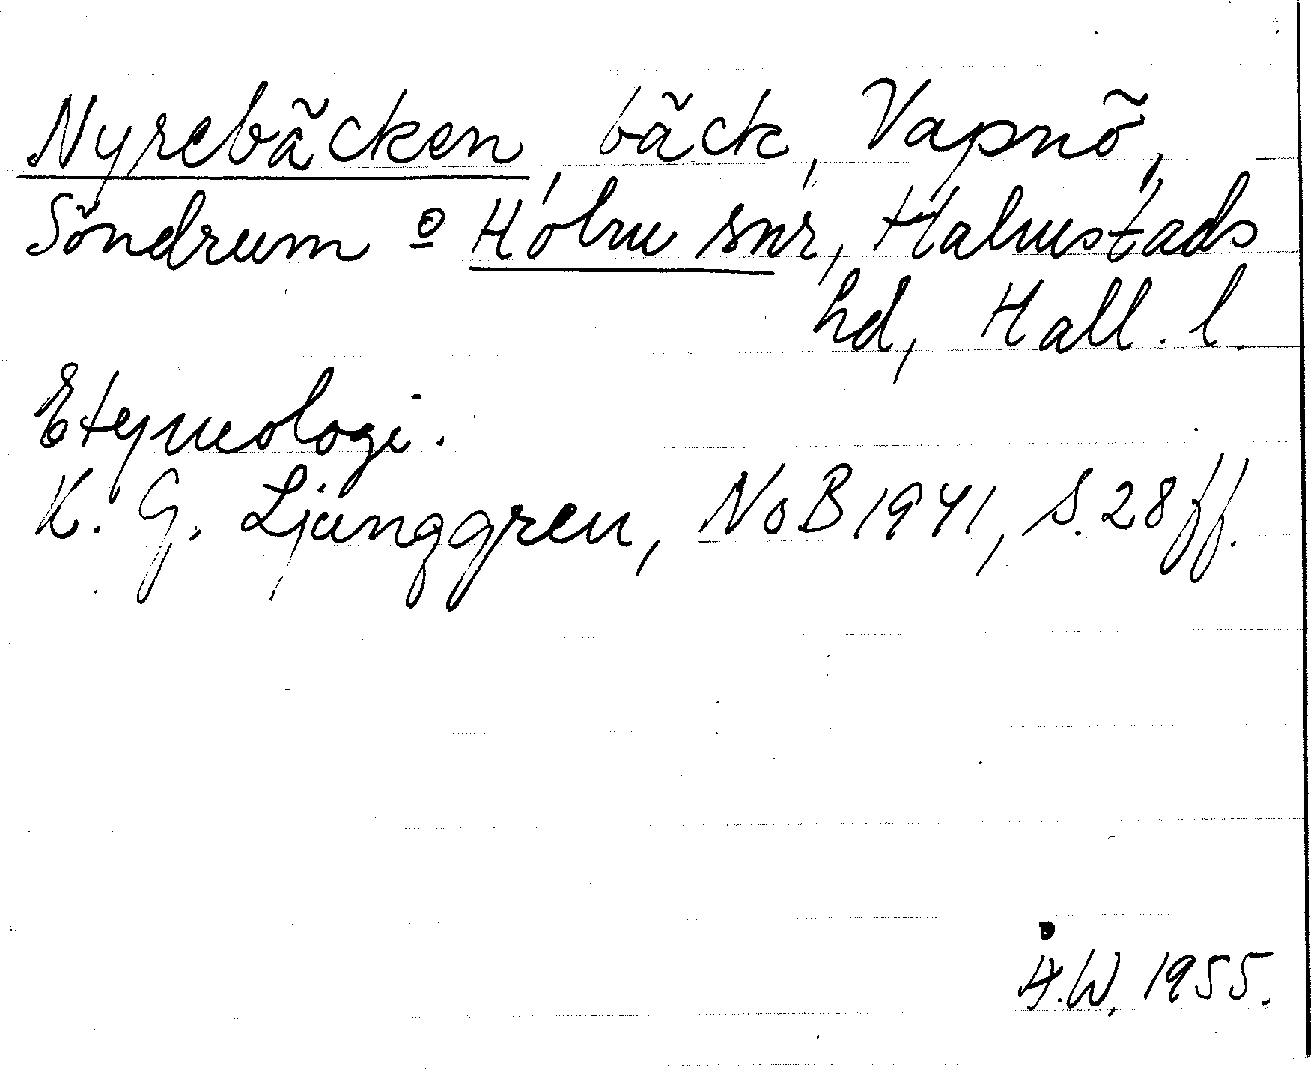 Nyrebäcken, bäck, Vapnö,
Söndrum o Holm snr, Halmstads
hd, Hall. l.
Etymologi.
K. G. Ljunggren, NoB 1941, s. 28 ff.
Å.W. 1955.